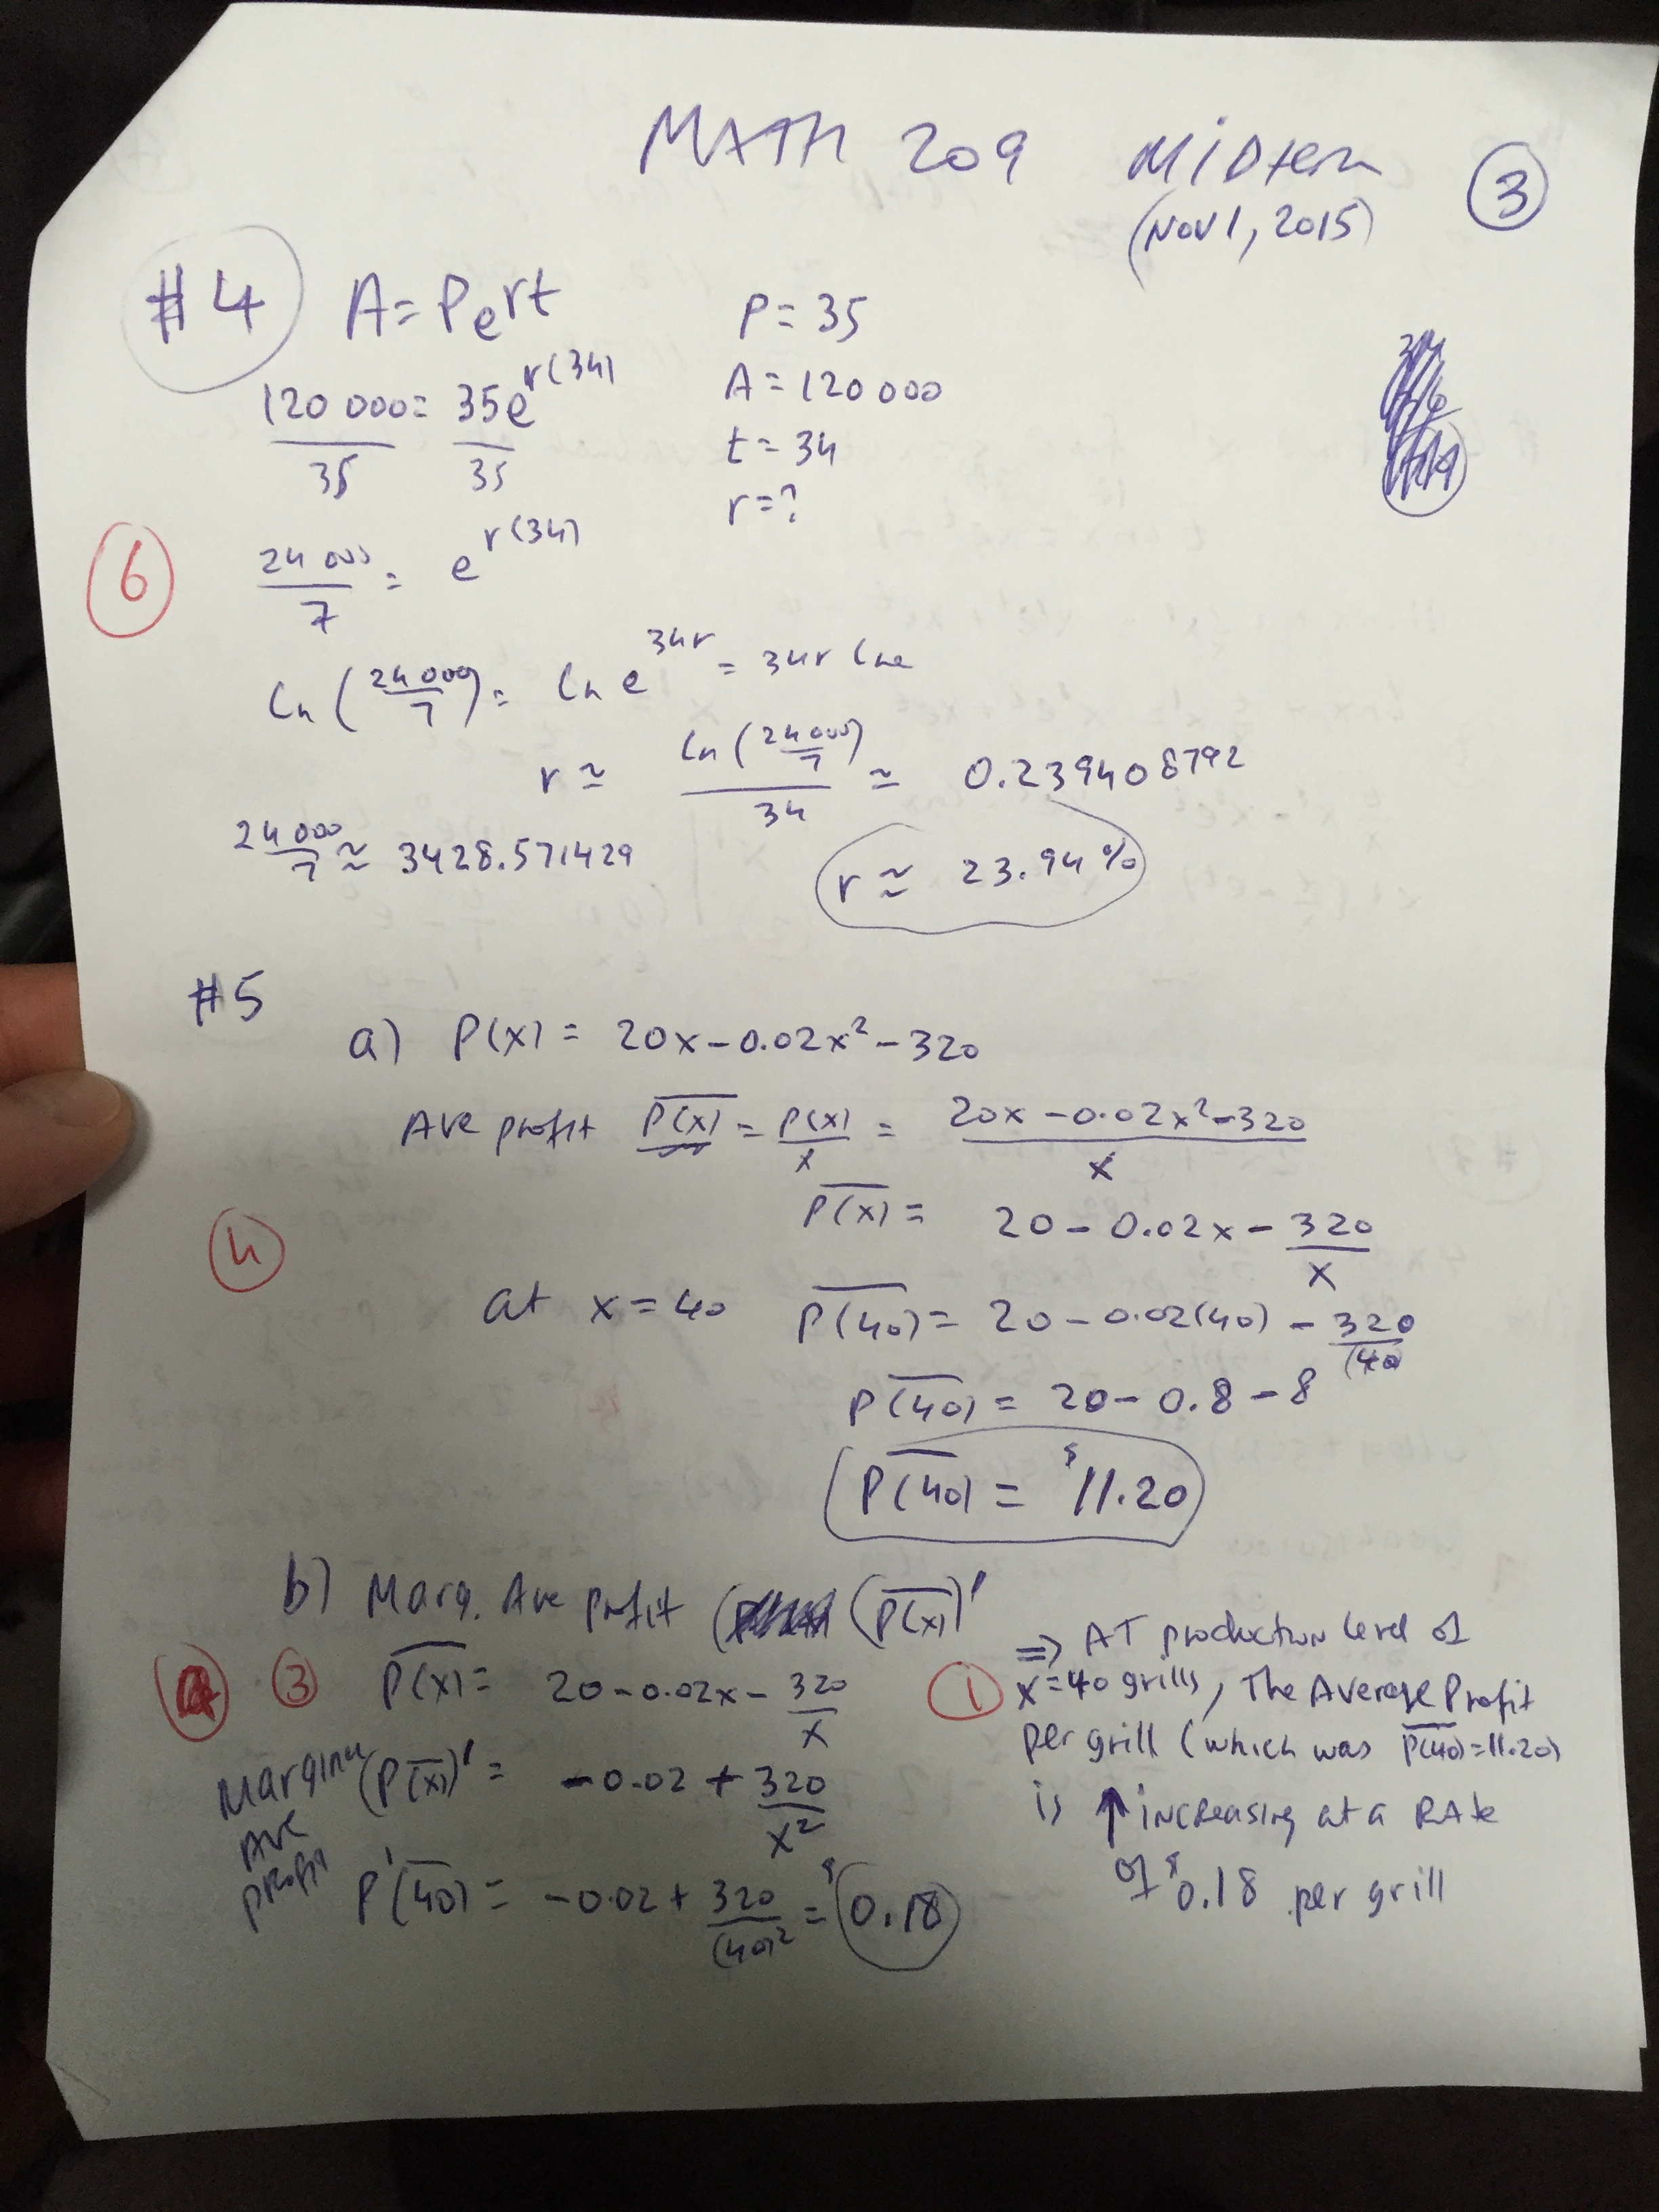 MATH 209 MiDterm
(NOV 1, 2015)
3
#4 A = Pe^rt
P = 35
120 000 = 35e^r(34)
35 35
A = 120 000
t = 34
r = ?
6
24 000 = e^r(34)
7
ln (24 000/7) = ln e^34r = 34r lne
r ≃ ln (24 000/7) ≃ 0.239408792
34
24 000/7 ≃ 3428.571429
r ≃ 23.94%
#5
a) P(x) = 20x - 0.02x² - 320
Ave profit P̅(̅x̅)̅ = P(x)/x = 20x - 0.02x² - 320
x
P̅(̅x̅)̅ = 20 - 0.02x - 320/x
4
at x = 40 P̅(̅4̅0̅)̅ = 20 - 0.02(40) - 320/(40)
P̅(̅4̅0̅)̅ = 20 - 0.8 - 8
P̅(̅4̅0̅)̅ = $11.20
b) Marg. Ave profit (P̅(̅x̅)̅)'
3
P̅(̅x̅)̅ = 20 - 0.02x - 320/x
Marginal Ave profit (P̅(̅x̅)̅)' = -0.02 + 320/x²
P'(̅4̅0̅)̅ = -0.02 + 320/(40)² = $0.18
1
⇒ AT production level of
x = 40 grills, The Average Profit
per grill (which was P̅(̅4̅0̅)̅ = 11.20)
is ↑ increasing at a RAte
of $0.18 per grill